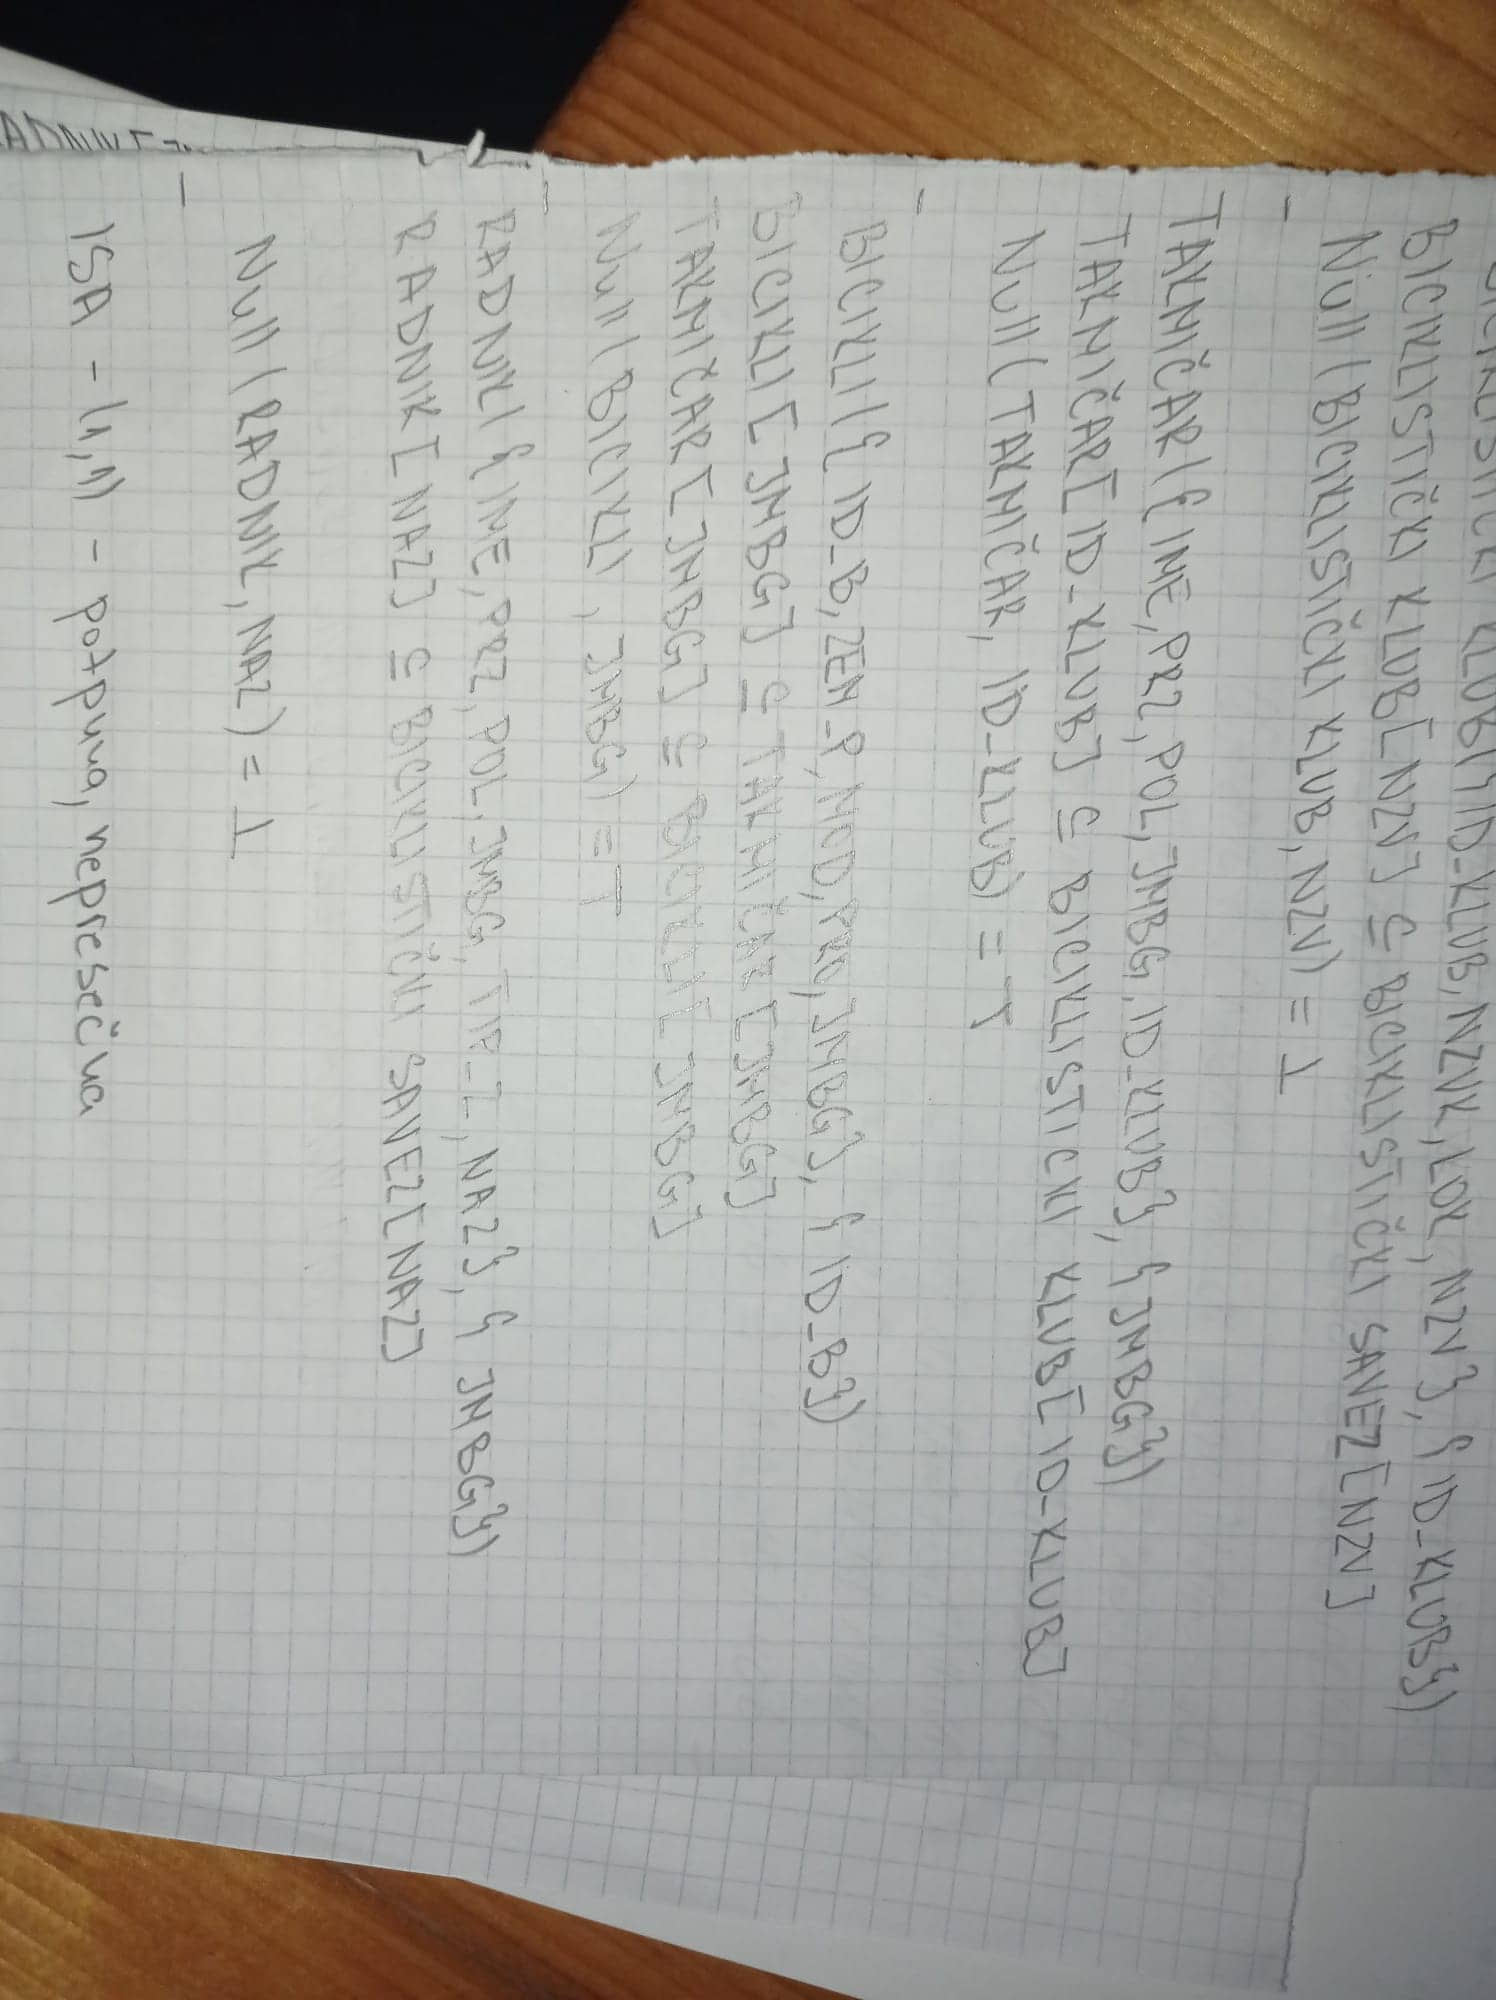 BICIKLISTIČKI KLUB({ID_KLUB, NZVK, LOK, NZV}, {ID_KLUB})
BICIKLISTIČKI KLUB[NZV] ⊆ BICIKLISTIČKI SAVEZ[NZV]
Null(BICIKLISTIČKI KLUB, NZV) = ⊥
-
TAKMIČAR({IME, PRZ, POL, JMBG, ID_KLUB}, {JMBG})
TAKMIČAR[ID_KLUB] ⊆ BICIKLISTICKI KLUB[ID_KLUB]
Null(TAKMIČAR, ID_KLUB) = T
-
BICIKLI({ID_B, ZEM_P, MOD, PRO, JMBG}, {ID_B})
BICIKLI[JMBG] ⊆ TAKMIČAR[JMBG]
TAKMIČAR[JMBG] ⊆ BICIKLI[JMBG]
Null(BICIKLI, JMBG) = T
-
RADNIK({IME, PRZ, POL, JMBG, TIP_Z, NAZ}, {JMBG})
RADNIK[NAZ] ⊆ BICIKLISTIČKI SAVEZ[NAZ]
Null(RADNIK, NAZ) = ⊥
-
ISA - (1,1) - potpuna, nepresečna